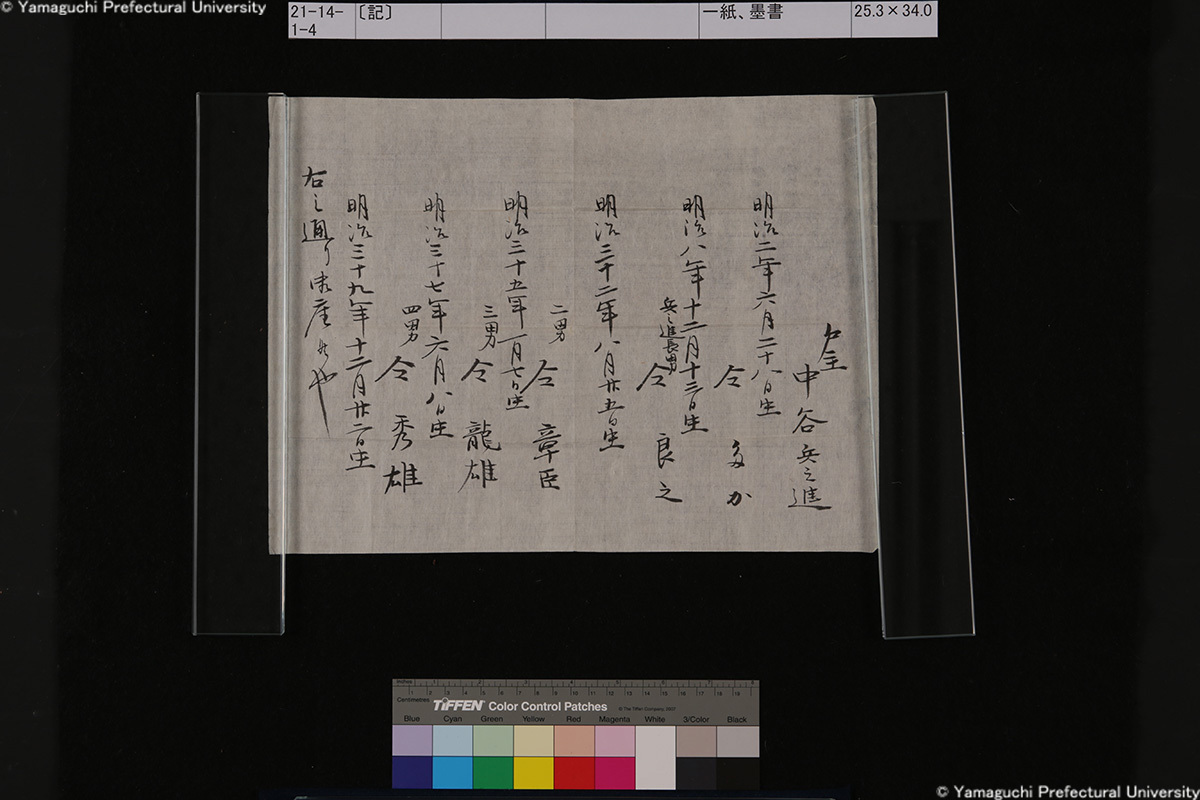 © Yamaguchi Prefectural University
21-14-1-4
〔記〕
一紙、墨書
25.3×34.0
戸主
中谷兵之進
明治二年六月二十八日生
仝 多か
明治八年十二月十三日生
兵之進長男
仝 良之
明治三十二年八月廿五日生
二男
仝 章臣
明治三十五年一月七日生
三男
仝 龍雄
明治三十七年六月八日生
四男
仝 秀雄
明治三十九年十二月廿二日生
右之通り
也
inches
Centimetres
TIFFEN Color Control Patches
© The Tiffen Company, 2007
Blue Cyan Green Yellow Red Magenta White 3/Color Black
© Yamaguchi Prefectural University